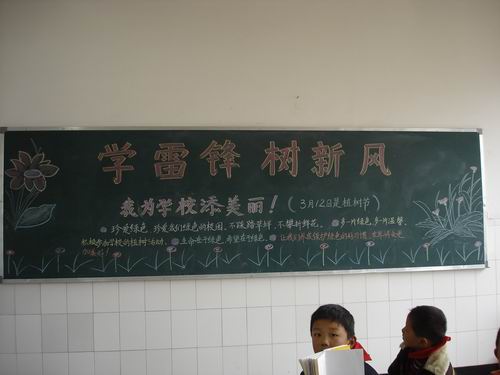 学雷锋 树新风
我为学校添美丽！（3月12日是植树节）
珍爱绿色，珍爱我们绿色的校园，不践踏草坪，不攀折鲜花。 多一片绿色，多一片温馨。
积极参加学校的植树活动。 生命在于绿色，希望在于绿色。 让我们养成保护绿色的好习惯，